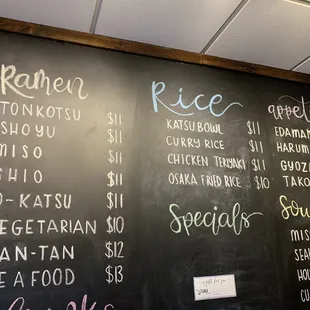 Ramen
TONKOTSU $11
SHOYU $11
MISO $11
SHIO $11
O-KATSU $11
VEGETARIAN $10
AN-TAN $12
EAFOOD $13
Rice
KATSUBOWL $11
CURRY RICE $11
CHICKEN TERIYAKI $11
OSAKA FRIED RICE $10
Specials
appeti
EDAMA
HARUM
GYOZ
TAKO
Sou
MIS
SEA
HO
CU